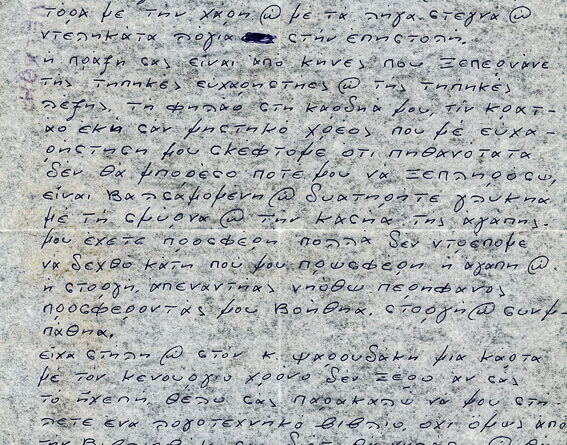 τόρα με τήν χαρη @ με τα λήγα στεγνα @
ντεληκατα λογια στήν επηστολή.
η πραξη σας είναι απο κηνες που ξεπερνάνε
της τηπικές ευχαρηστηες @ της τηπικές
λέξης, τή φηλαο στη καρδηα μου, τίν κρατ-
αο εκή σαν μηστηκο χρέος που με ευχα-
ρηστηση μου σκεφτομε οτι πηθανότατα
δεν θα μπορέσο ποτε μου να ξεπληρόσω,
είναι βαλσαμομενη @ διατηρήτε γλυκηα
με τή σμύρνα @ την κασηα της αγάπης.
μου έχετε προσφερη πολλα δεν ντρεπομε
να δεχθο κατη πού μου πρωσφερη ή αγαπη @
η στοργή, απεναντηας νηόθω περηφανος
προσφέροντάς μου βοήθηα, στοργή @ συνμ-
παθηα,
είχα στηλη @ στον κ. ψαρουδάκη μια καρτα
με τόν κενουργιο χρόνο δεν ξέρω άν σας
το ήχεπη, θέλω σας παρακαλώ να μου στη-
λετε ενα λογοτεχνηκο βιβλιο, οχι ομως απο